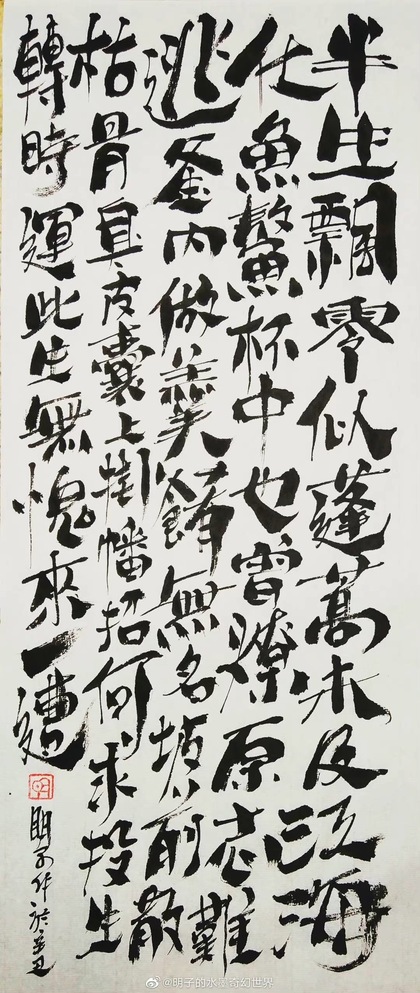 半生飄零似蓬蒿未及江海
化魚鰲杯中也曾燎原志難
逃釜内做羹無名墳前散
枯骨臭皮囊上掛幡招何求投生
轉時運此生無愧來一遭
明子作於辛丑
@明子的水墨奇幻世界